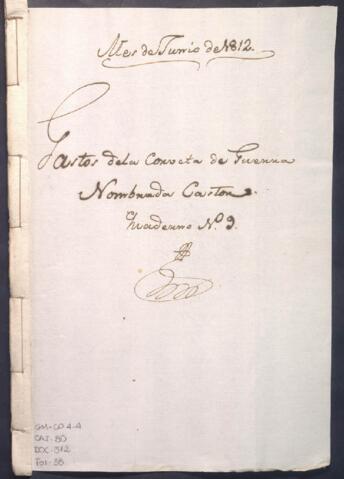 Mes de Junio de 1812.
Gastos dela Corveta de Guerra
Nombrada Castor.
Quaderno N.o 9.
GM-CO 4-4
CAJ-80
DOC-512
Fol-38